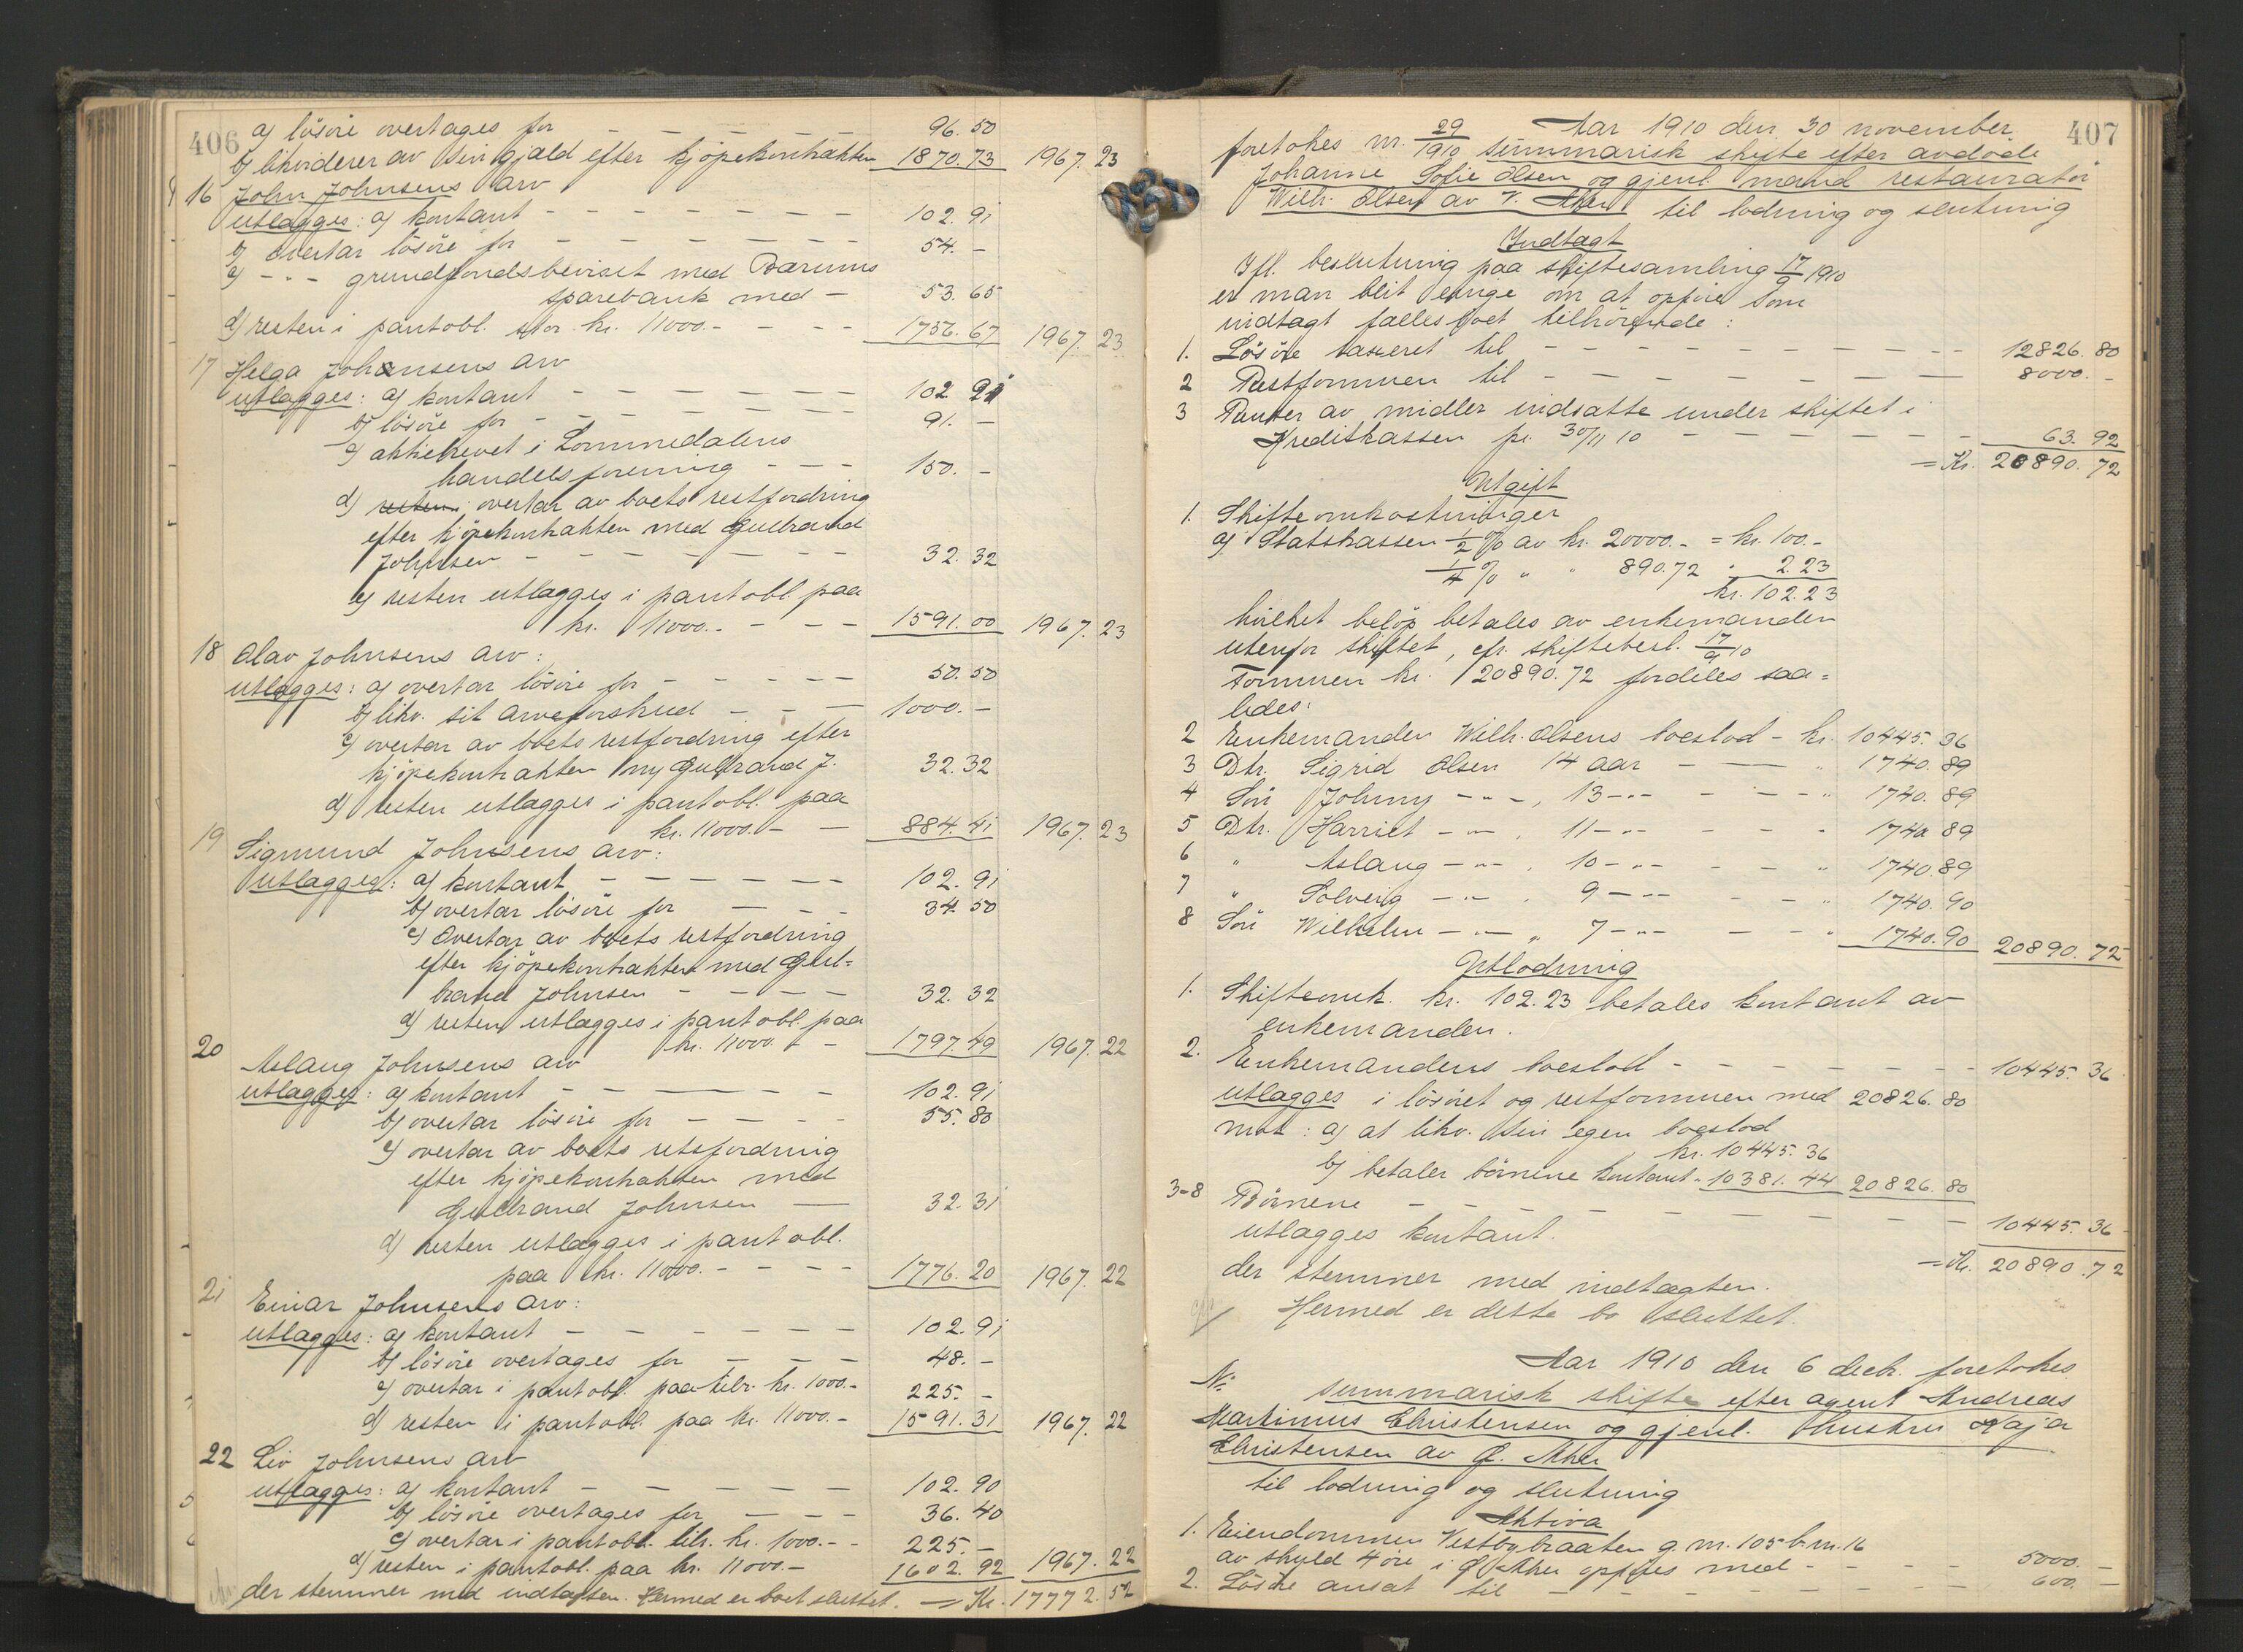 406
a) løsøre overtages for - - - - - 96.50
b) likviderer av sin gjæld efter kjøpekontrakten 1870.73 1967.23
16 John Johnsens arv
utlægges: a) kontant - - - - - - - 102.91
b) overtar løsøre for - - - - - - 54.-
c) -"- grundfondsbeviset med Bærums
sparebank med - 53.65
d) resten i pantobl. stor kr. 11000.- - - - 1756.67 1967.23
17 Helga Johansens arv
utlægges: a) kontant - - - - - - 102.91
b) løsøre for - - - - - - - 91.-
c) aktiebrevet i Lommedalens
handelsforening - - - 150.-
d) resten i overtar av boets restfordring
efter kjøpekontrakten med Gulbrand
Johnsen - - - - - - - 32.32
e) resten utlægges i pantobl. paa
kr. 11000.- - - - 1591.00 1967.23
18 Olav Johnsens arv:
utlægges: a) overtar løsøre for - - - - - 50.50
b) likv. sit arveforskud - - - 1000.-
c) overtar av boets restfordring efter
kjøpekontrakten m/ Gulbrand J. 32.32
d) resten utlægges i pantobl. paa
kr. 11000.- - 884.41 1967.23
19 Sigmund Johnsens arv:
utlægges: a) kontant - - - - - - 102.91
b) overtar løsøre for - - - 34.50
c) Overtar av boets restfordring
efter kjøpekontrakten med Gul=
brand Johnsen - - - - 32.32
d) resten utlægges i pantobl. paa
kr. 11000.- - 1797.49 1967.22
20 Aslaug Johnsens arv
utlægges: a) kontant - - - - - - 102.91
b) overtar løsøre for - - - - 55.80
c) overtar av boets restfordring
efter kjøpekontrakten med
Gulbrand Johnsen - 32.31
d) resten utlægges i pantobl.
paa kr. 11000.- - - - 1776.20 1967.22
21 Einar Johnsens arv:
utlægges: a) kontant - - - - - - 102.91
b) løsøre overtages for - - - 48.-
c) overtar i pantobl. paa kr. 1000.- 225.-
d) resten i pantobl. paa kr. 11000.- 1591.31 1967.22
22 Liv Johnsens arv
utlægges: a) kontant - - - - - 102.90
b) løsøre overtages for - - - 36.40
c) overtar i pantobl. kr. 1000.- - 225.-
d) resten i pantobl. paa kr. 11000.- 1602.92 1967.22
der stemmer med indtægten. Hermed er boet sluttet. = Kr. 17772.52
407
Aar 1910 den 30 november
foretokes nr. 29/1910 summarisk skifte efter avdøde
Johanne Sofie Olsen og gjenl. mand restauratør
Wilh. Olsen av V. Aker til lodning og slutning
Indtægt
Ifl. beslutning paa skiftesamling 17/9 1910
er man blit enige om at opføre som
indtægt fællesboet tilhørende:
1. Løsøre taxeret til - - - - - - - - 12826.80
2 Restformuen til - - - - - - - 8000.-
3 Renter av midler indsatte under skiftet i
Kreditkassen pr. 30/11 10 - - - - - - 63.92
= Kr. 20890.72
Utgift
1. Skifteomkostninger
a) Statskassen 1/2 % av kr. 20000.- = kr. 100.-
1/4 % " " 890.72 " 2.23
kr. 102.23
hvilket beløp betales av enkemanden
utenfor skiftet, cfr. skiftebesl. 17/9 10
Formuen kr. 20890.72 fordeles saa=
ledes:
2 Enkemanden Wilh. Olsens boeslod - kr. 10445.36
3 Dtr. Sigrid Olsen 14 aar - - " 1740.89
4 Søn Johnny -"-, 13 -"- - - - " 1740.89
5 Dtr. Harriet -"-, 11 -"- - - - 1740.89
6 " Aslaug -"-, 10 -"- - - " 1740.89
7 " Solveig -"-, 9 -"- - - " 1740.90
8 Søn Wilhelm -"-, 7 -"- - - " 1740.90 20890.72
Utlodning
1. Skifteomk. kr. 102.23 betales kontant av
enkemanden.
2. Enkemandens boeslod - - - - - - - 10445.36
utlægges i løsøret og restformuen med 20826.80
mot: a) at likv. sin egen boeslod
kr. 10445.36
b) betaler børnene kontant " 10381.44 20826.80
3-8 Børnene - - - - - - - - 10445.36
utlægges kontant.
= Kr. 20890.72
der stemmer med indtægten.
Hermed er dette bo sluttet.
Aar 1910 den 6 decb. foretokes
No summarisk skifte efter agent Andreas
Martinius Christensen og gjenl. hustru Kaja
Christensen av Ø. Aker
til lodning og slutning
Aktiva
1. Eiendommen Vestbybraaten g.nr. 105 b.nr. 16
av skyld 4 øre i Ø. Aker opføres med - - - - 5000.-
2. Løsøre ansat til - - - - - - - 600.-